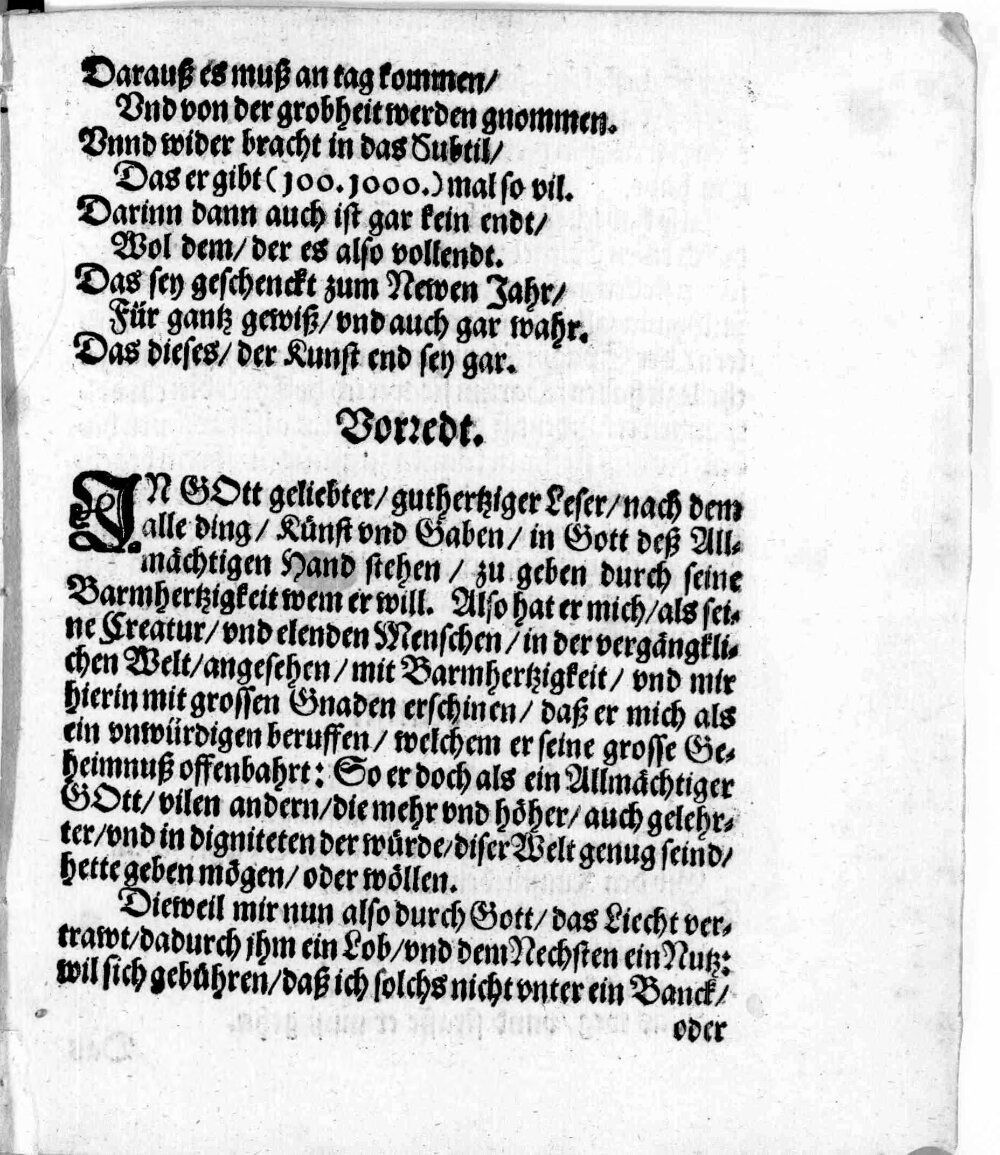 Darauß es muß an tag kommen/
Vnd von der grobheit werden gnommen.
Vnnd wider bracht in das Subtil/
Das er gibt (100. 1000.) mal so vil.
Darinn dann auch ist gar kein endt/
Wol dem/ der es also vollendt.
Das sey geschenckt zum Newen Jahr/
Für gantz gewiß/ vnd auch gar wahr.
Das dieses/ der Kunst end sey gar.
Vorredt.
IN GOtt geliebter/ guthertziger Leser/ nach dem
alle ding/ Künst vnd Gaben/ in Gott deß All-
mächtigen Hand stehen/ zu geben durch seine
Barmhertzigkeit wem er will. Also hat er mich/ als sei-
ne Creatur/ vnd elenden Menschen/ in der vergängkli-
chen Welt/ angesehen/ mit Barmhertzigkeit/ vnd mir
hierin mit grossen Gnaden erschinen/ daß er mich als
ein vnwürdigen beruffen/ welchem er seine grosse Ge-
heimnuß offenbahrt: So er doch als ein Allmächtiger
GOtt/ vilen andern/ die mehr vnd höher/ auch gelehr-
ter/ vnd in digniteten der würde/ diser Welt genug seind/
hette geben mögen/ oder wöllen.
Dieweil mir nun also durch Gott/ das Liecht ver-
trawt/ dadurch jhm ein Lob/ vnd dem Nechsten ein Nutz:
wil sich gebühren/ daß ich solchs nicht vnter ein Banck/
oder